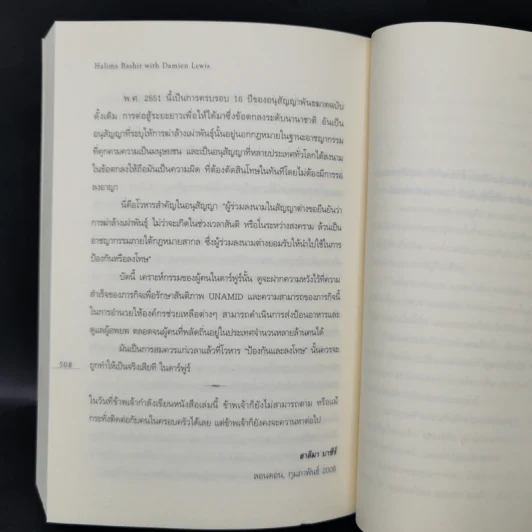 Halima Bashir with Damien Lewis
พ.ศ. 2551 นี้เป็นการครบรอบ
ดั้งเดิม การต่อสู้ระยะยาวเพื่อให้ได้มาซึ่งข้อตกลงระดับนานาชาติ อันเป็น
อนุสัญญาที่ระบุให้การฆ่าล้างเผ่าพันธุ์นั้นอยู่นอกกฎหมายในฐานะอาชญากรรม
ที่คุกคามความเป็นมนุษยชน และเป็นอนุสัญญาที่หลายประเทศทั่วโลกได้ลงนาม
ในข้อตกลงให้ถือมันเป็นความผิด ที่ต้องตัดสินโทษในทันทีโดยไม่ต้องมีการรอ
ลงอาญา
นี่คือโวหารสำคัญในอนุสัญญา "ผู้ร่วมลงนามในสัญญาต่างขอยืนยันว่า
การฆ่าล้างเผ่าพันธุ์ ไม่ว่าจะเกิดในช่วงเวลาสันติ หรือในระหว่างสงคราม ล้วนเป็น
อาชญากรรมภายใต้กฎหมายสากล ซึ่งผู้ร่วมลงนามต่างยอมรับให้นำไปใช้ในการ
ป้องกันหรือลงโทษ"
บัดนี้ เคราะห์กรรมของผู้คนในดาร์ฟูร์นั้น ดูจะฝากความหวังไว้ที่ความ
สำเร็จของภารกิจเพื่อรักษาสันติภาพ UNAMID และความสามารถของภารกิจนี้
ในการอำนวยให้องค์กรช่วยเหลือต่างๆ สามารถดำเนินการส่งป้อนอาหารและ
ดูแลผู้อพยพ ตลอดจนผู้คนที่พลัดถิ่นอยู่ในประเทศจำนวนหลายล้านคนได้
มันเป็นการสมควรแก่เวลาแล้วที่โวหาร "ป้องกันและลงโทษ" นั้นควรจะ
ถูกทำให้เป็นจริงเสียที ในดาร์ฟูร์
508
ในวันที่ข้าพเจ้ากำลังเขียนหนังสือเล่มนี้ ข้าพเจ้าก็ยังไม่สามารถตาม หรือแม้
กระทั่งติดต่อกับคนในครอบครัวได้เลย แต่ข้าพเจ้าก็ยังคงจะควานหาต่อไป
ฮาลิมา บาชีร์
ลอนดอน, กุมภาพันธ์ 2008